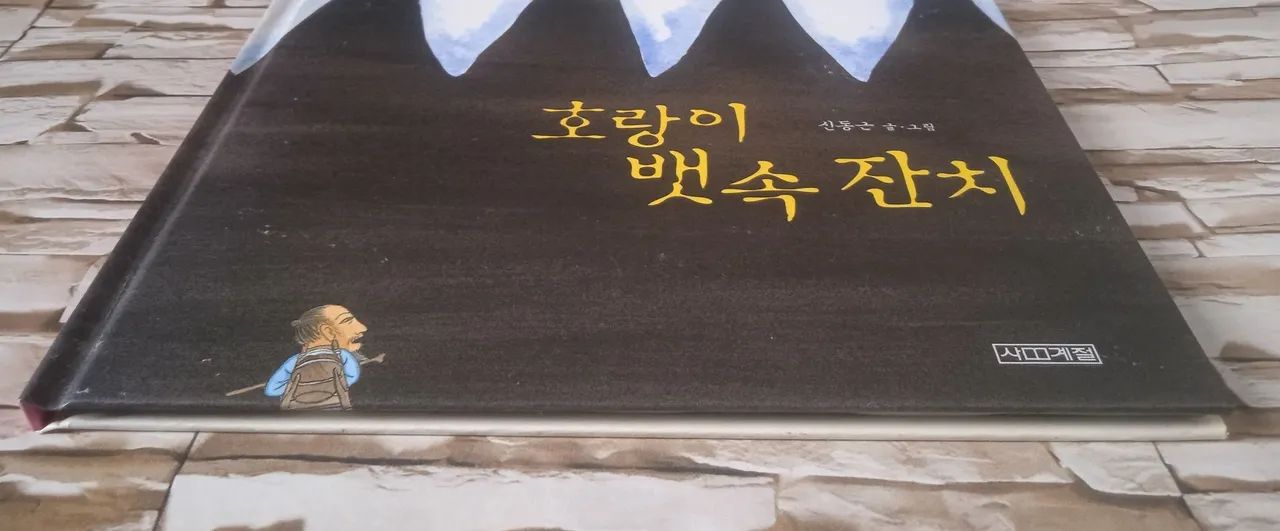 호랑이
뱃속 잔치
신동근 글·그림
사계절